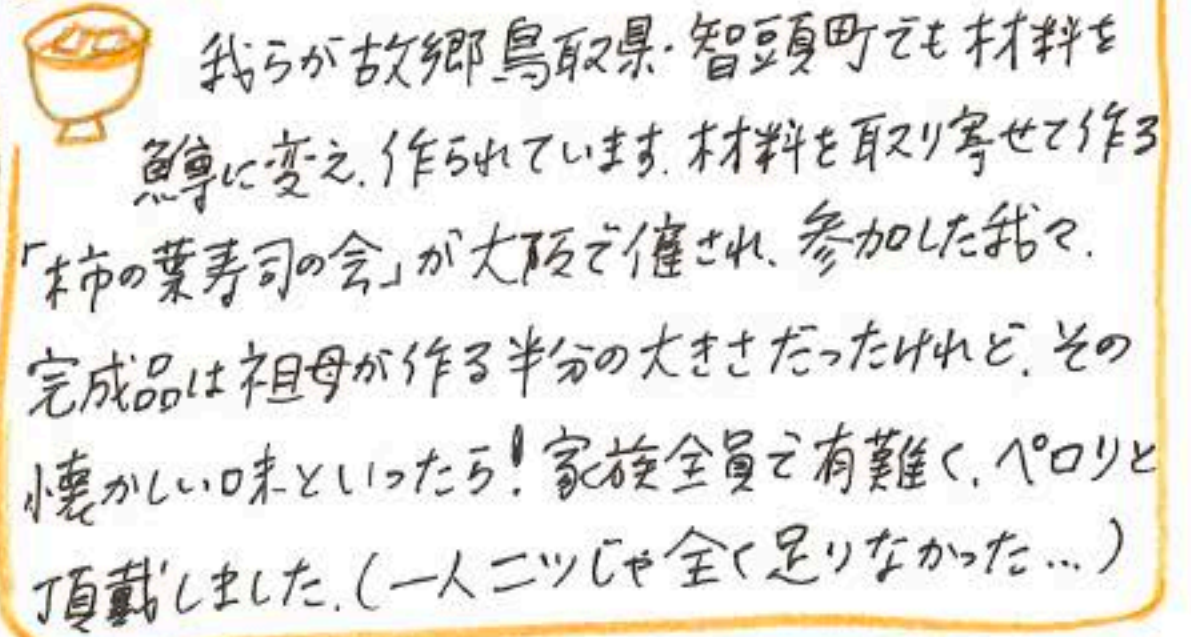 我らが故郷鳥取県・智頭町でも材料を
鱒に変え、作られています。材料を取り寄せて作る
「柿の葉寿司の会」が大阪で催され、参加した我々。
完成品は祖母が作る半分の大きさだったけれど、その
懐かしい味といったら！家族全員で有難く、ペロリと
頂戴しました。(一人二ツじゃ全く足りなかった…)